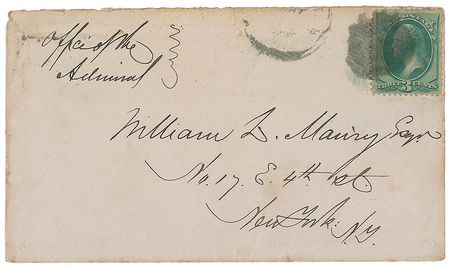 Office of the
Admiral
THREE CENTS
3
William L. Maury Esqr.
No. 17. E. 4th st.
New York: N.Y.